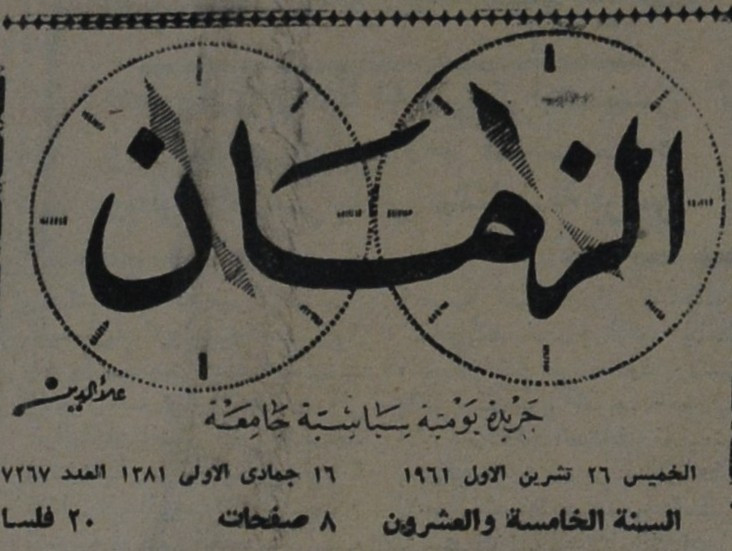 الزمان
علاءالدين
جريدة يومية سياسية جامعة
الخميس ٢٦ تشرين الاول ١٩٦١ ١٦ جمادى الاولى ١٣٨١ العدد ٧٢٦٧
السنة الخامسة والعشرون ٨ صفحات ٢٠ فلسا